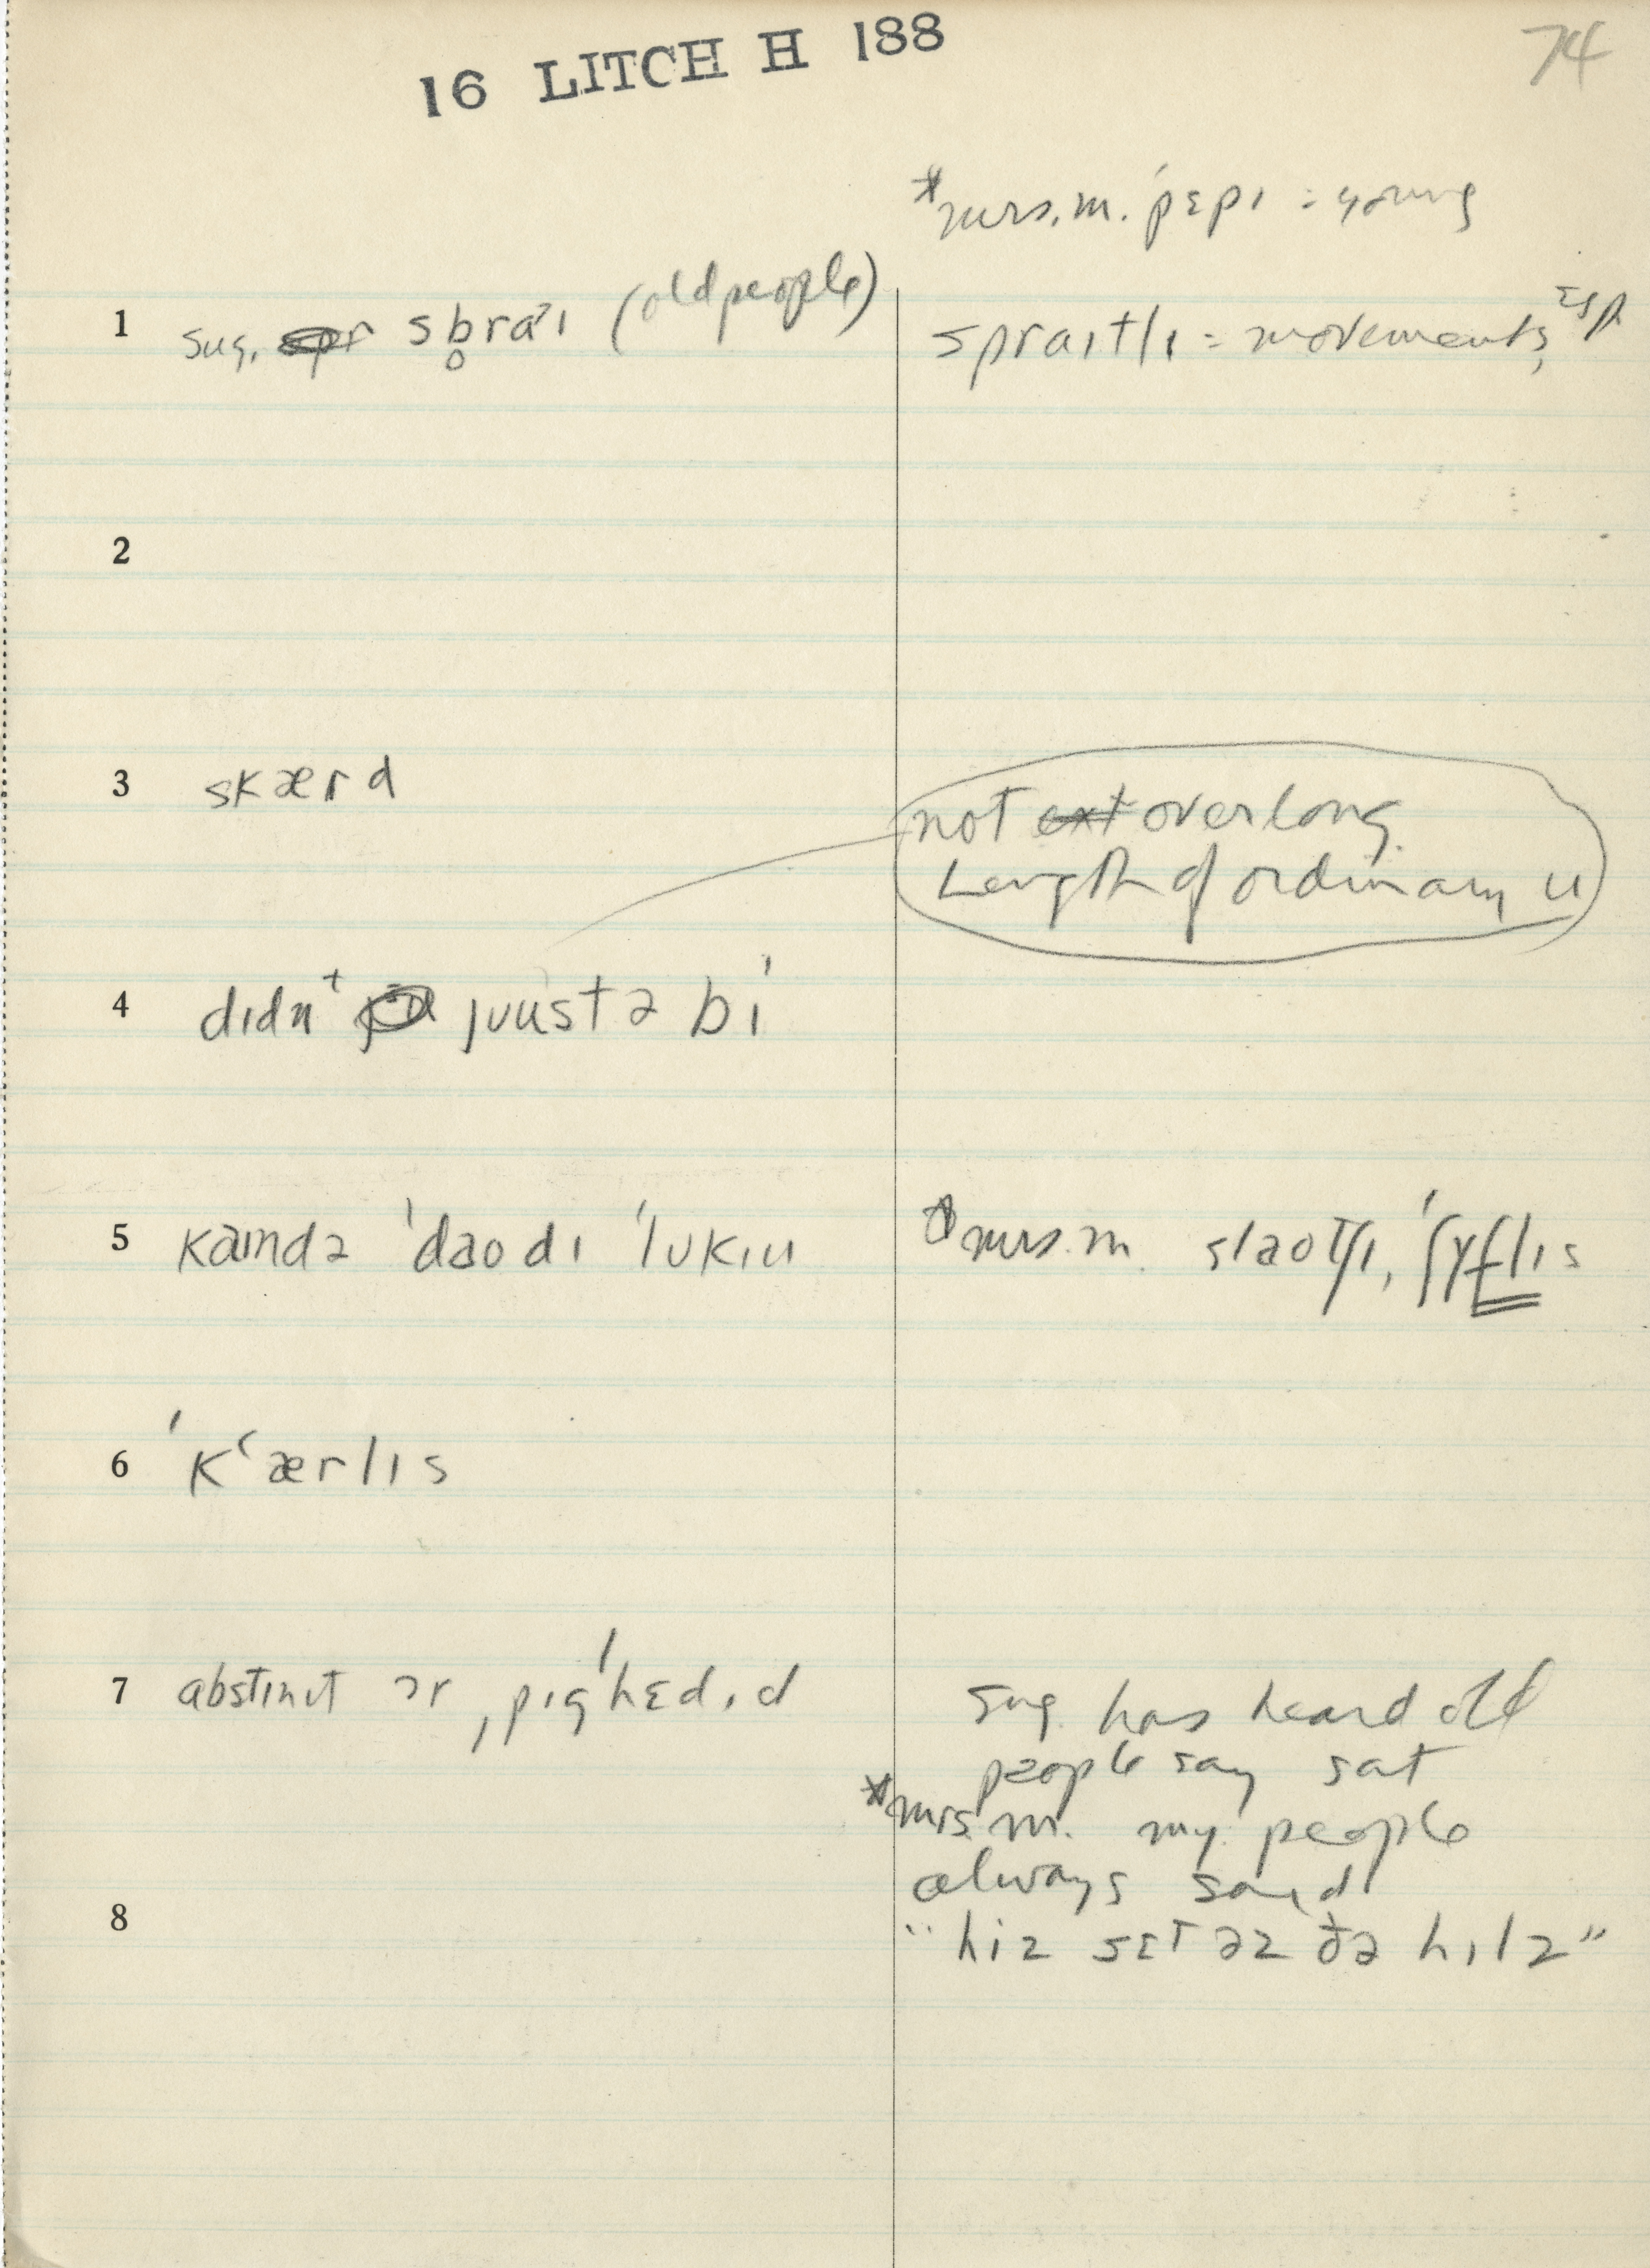 16 LITCH H 188
74
*Mrs. M. ˈpɛpɪ = young
1 sug. sb̥raˑɪ (old people)
spraɪtlɪ = movements, esp.
2
3 skærd
not ext overlong.
Length of ordinary u
4 dɪdnᵗ juustə bi
5 kaɪndə ˈdaodɪ ˈlukɪn
*Mrs. M. slaotʃɪ, ˈʃɤflɪs
6 ˈkʻærlɪs
7 abstɪnɪt ər ˌpɪgˈhɛdɪd
sug. has heard old
people say sat
*Mrs. M. my people
always said
8
"hiz sɛt əz ðə hɪlz"